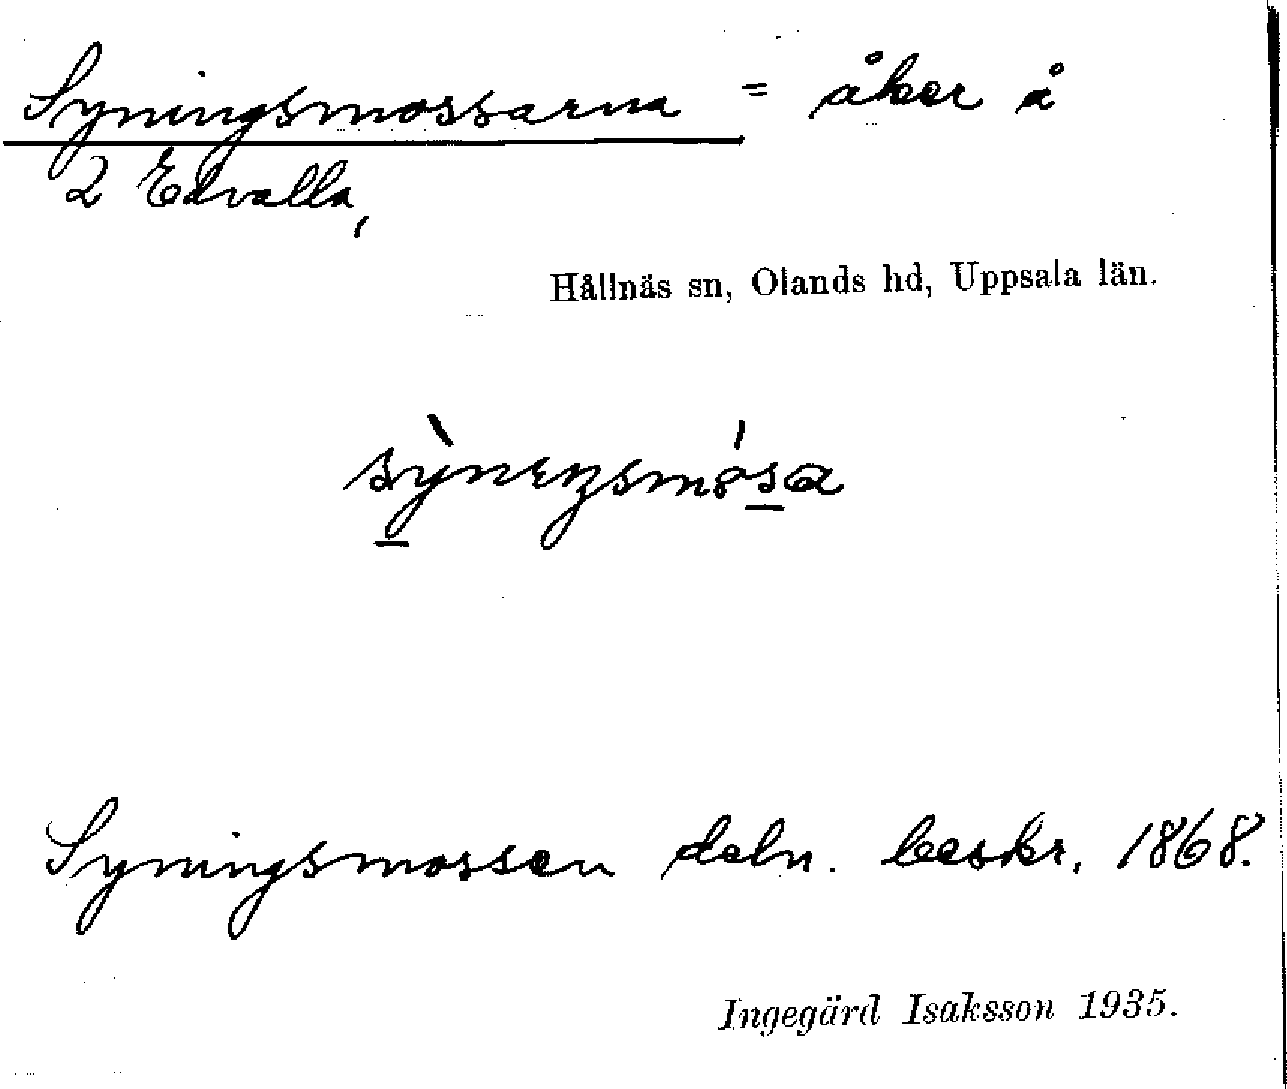 Syningsmossarna = åker å
2 Edvalla,
Hållnäs sn, Olands hd, Uppsala län.
Syningsmossen deln. beskr. 1868.
Ingegärd Isaksson 1935.